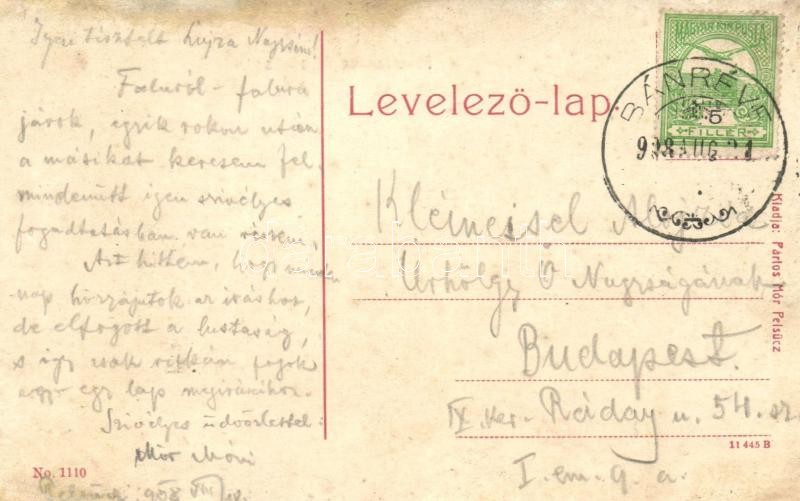 Igen tisztelt Lujza Nagysám!
Faluról-falura
járok, egyik rokon után
a másikat keresem fel
mindenütt igen szivélyes
fogadtatásban van részem.
Azt hittem, hogy minden
nap hozzájutok az íráshoz,
de elfogott a lustaság,
s így csak ritkán
egy lap megirásához.
Szivélyes üdvözlettel:
Mór
908 VIII
No. 1110
Levelező-lap.
MAGYAR KIR. POSTA
FILLÉR
BÁNRÉVE
908 AUG 21
Kleineisel
Úrhölgy Ő Nagyságának
Budapest.
IX. ker. Ráday u. 54. sz.
I. em. 9. a.
11 445 B
Kiadja: Partos Mór Pelsücz